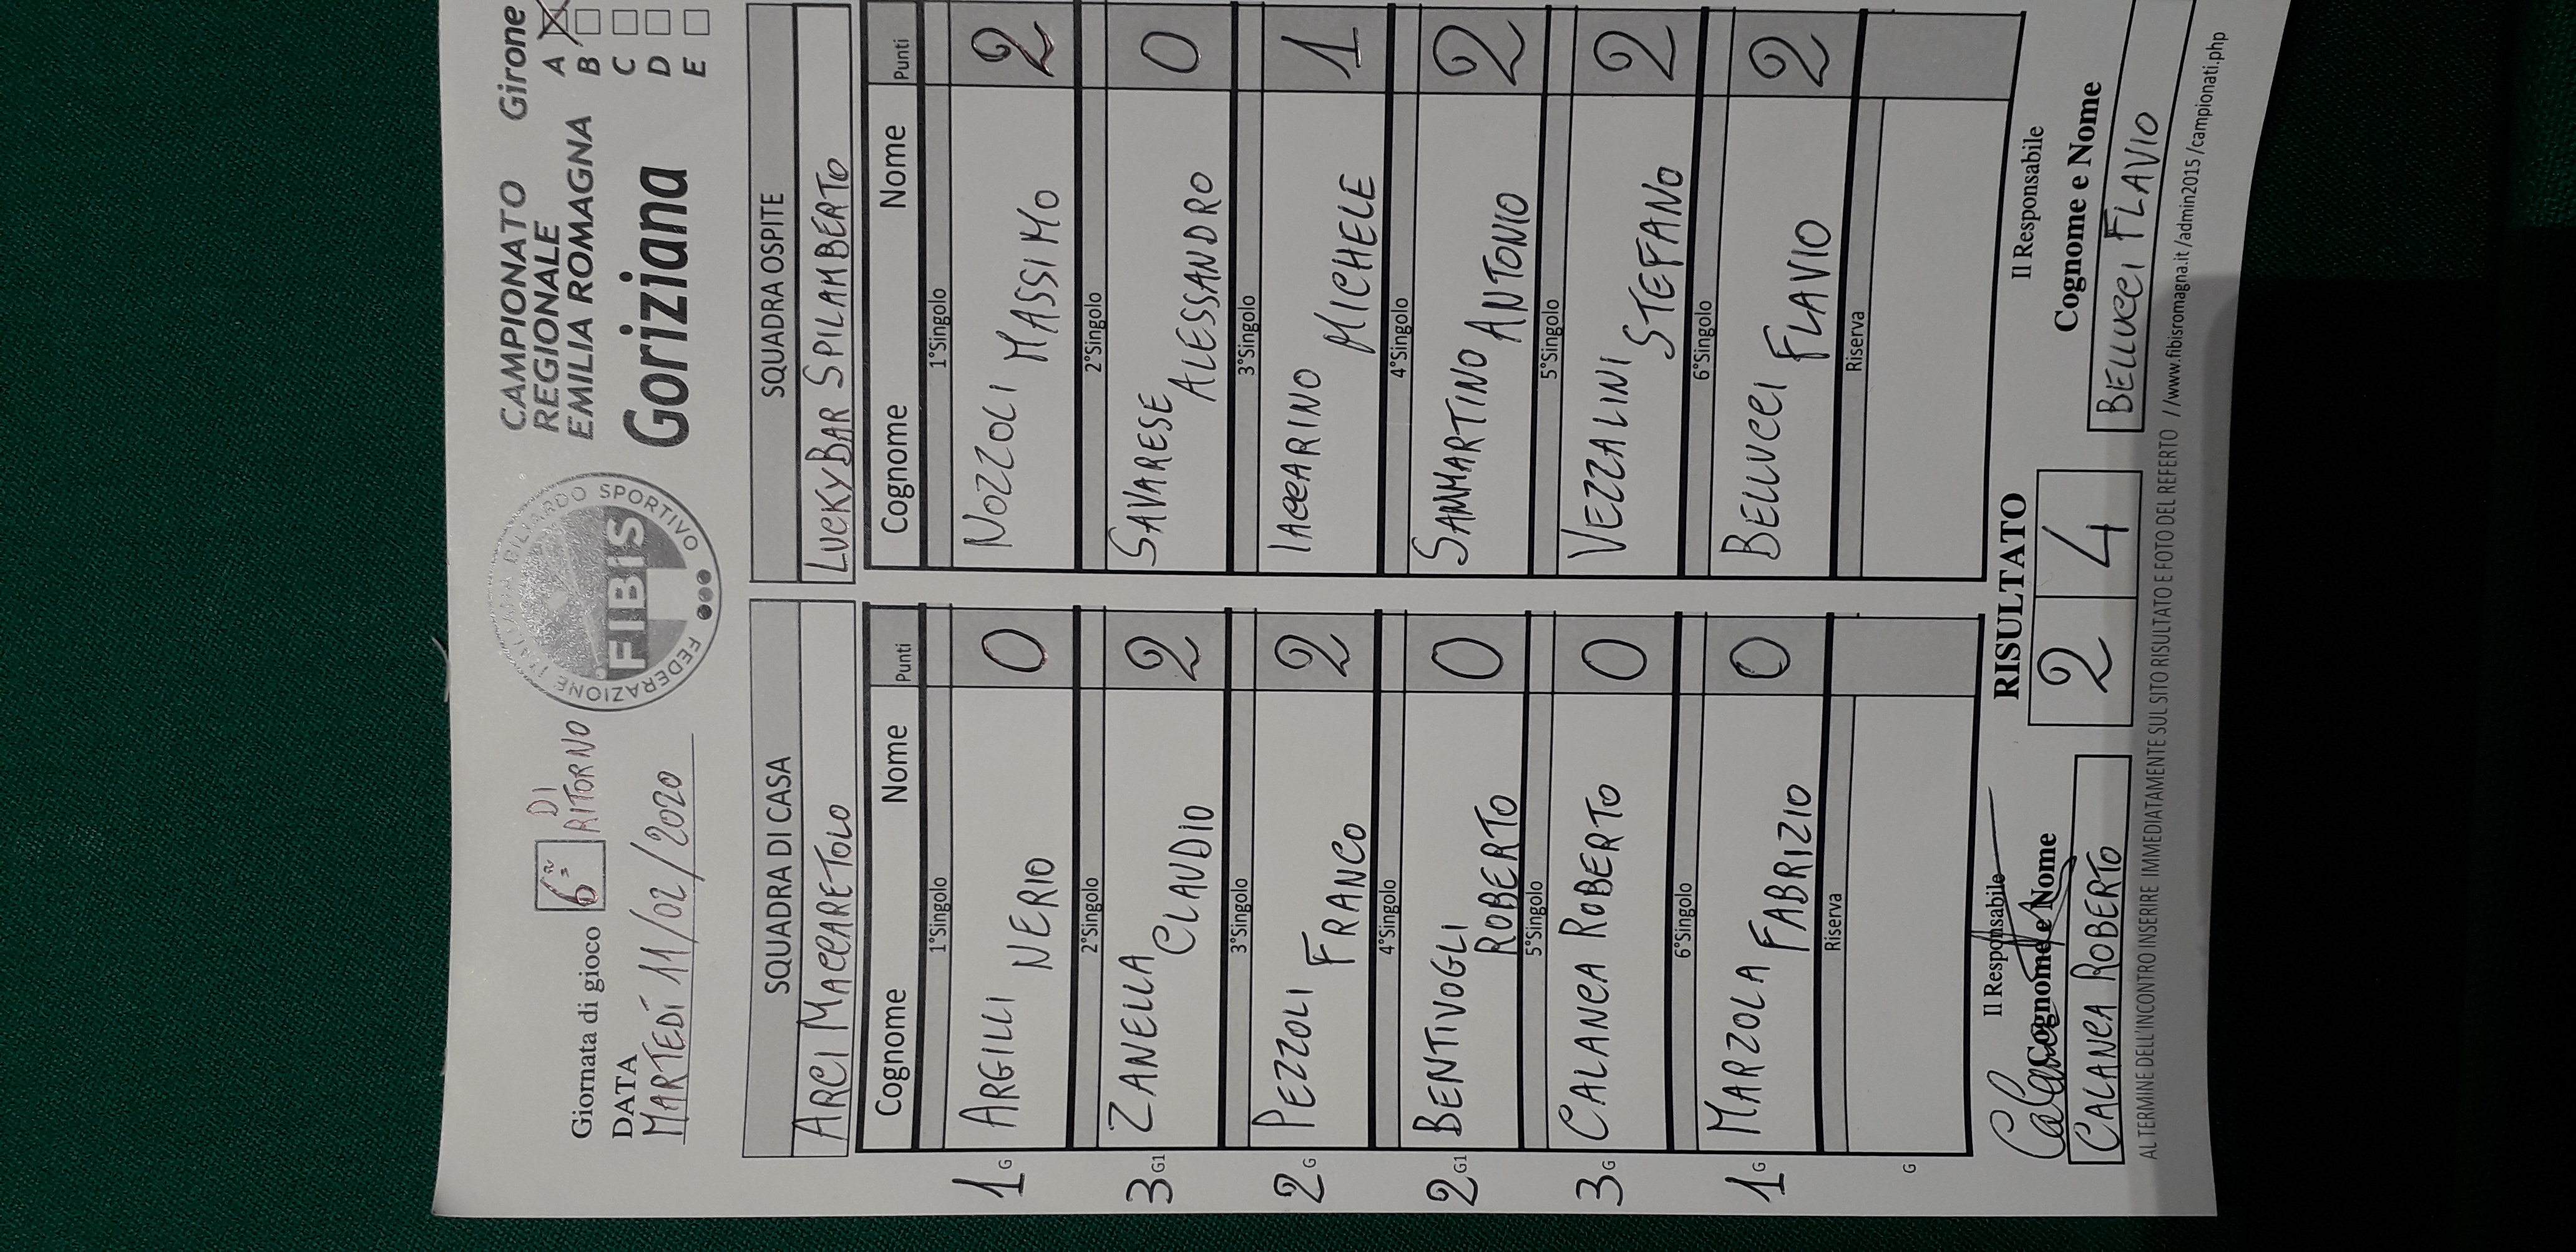 Giornata di gioco 6ª DI RITORNO
DATA
MARTEDÌ 11/02/2020
FEDERAZIONE ITALIANA BILIARDO SPORTIVO
FIBIS
CAMPIONATO
REGIONALE
EMILIA ROMAGNA
Goriziana
Girone
A
B
C
D
E
SQUADRA DI CASA
ARCI MACCARETOLO
Cognome Nome Punti
1°Singolo
1 G ARGILLI NERIO 0
2°Singolo
3 G1 ZANELLA CLAUDIO 2
3°Singolo
2 G PEZZOLI FRANCO 2
4°Singolo
2 G1 BENTIVOGLI ROBERTO 0
5°Singolo
3 G CALANCA ROBERTO 0
6°Singolo
1 G MARZOLA FABRIZIO 0
Riserva
G
SQUADRA OSPITE
LUCKY BAR SPILAMBERTO
Cognome Nome Punti
1°Singolo
NOZZOLI MASSIMO 2
2°Singolo
SAVARESE ALESSANDRO 0
3°Singolo
IACCARINO MICHELE 1
4°Singolo
SAMMARTINO ANTONIO 2
5°Singolo
VEZZALINI STEFANO 2
6°Singolo
BELLUCCI FLAVIO 2
Riserva
Il Responsabile
Cognome e Nome
CALANCA ROBERTO
RISULTATO
2 4
Il Responsabile
Cognome e Nome
BELLUCCI FLAVIO
AL TERMINE DELL'INCONTRO INSERIRE IMMEDIATAMENTE SUL SITO RISULTATO E FOTO DEL REFERTO //www.fibisromagna.it/admin2015/campionati.php